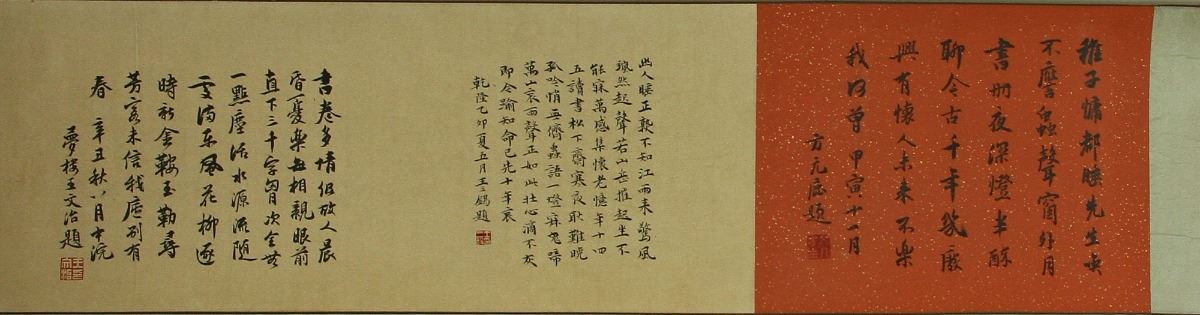 稚子慵都睡先生尖
不麈蟲聲窗外月
書冊夜深燈半酥
聊今古千年幾廢
興有懷人未來不樂
我何曾 甲寅十一月
方元鹿題
此人睡正熟不知江雨來驚風
颯然起聲若山岳摧起坐不
能寐萬感集懷老憶年十四
五讀書松下齋寒夜耿難曉
孤吟悄無儕蟲語一燈寂鬼啼
萬山哀雨聲正如此壯心消不灰
即今踰知命已先十年衰
乾隆乙卯夏五月王錫題
書卷多情似故人晨
昏憂樂每相親眼前
直下三千字胸次全無
一點塵活水源流隨
處滿東風花柳逐
時新金鞍玉勒尋
芳客未信我廬別有
春 辛丑秋八月中浣
夢樓王文治題